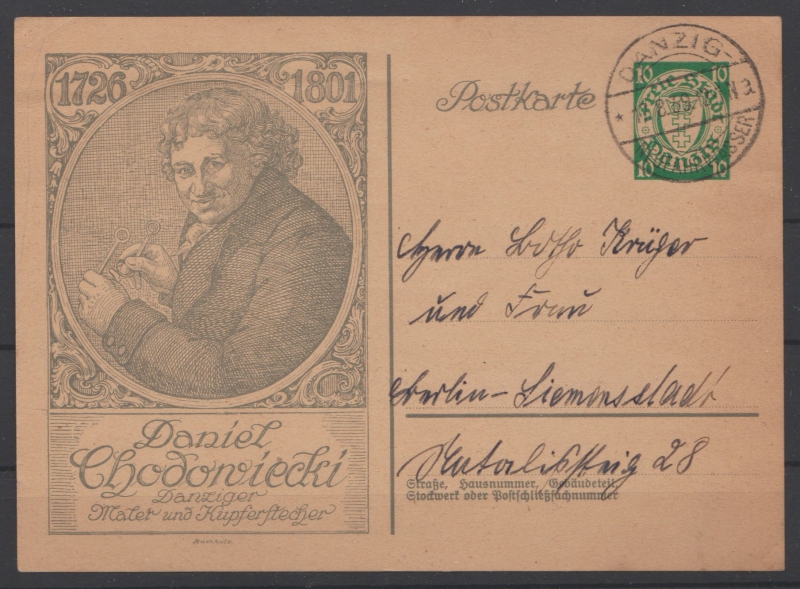 1726 1801
Daniel
Chodowiecki
Danziger
Maler und Kupferstecher
Postkarte
10 10
Freie Stadt
Danzig
10 10
DANZIG-
Herrn Botho Krüger
und Frau
Berlin-Siemensstadt
Natalissteig 28
Straße, Hausnummer, Gebäudeteil,
Stockwerk oder Postschließfachnummer